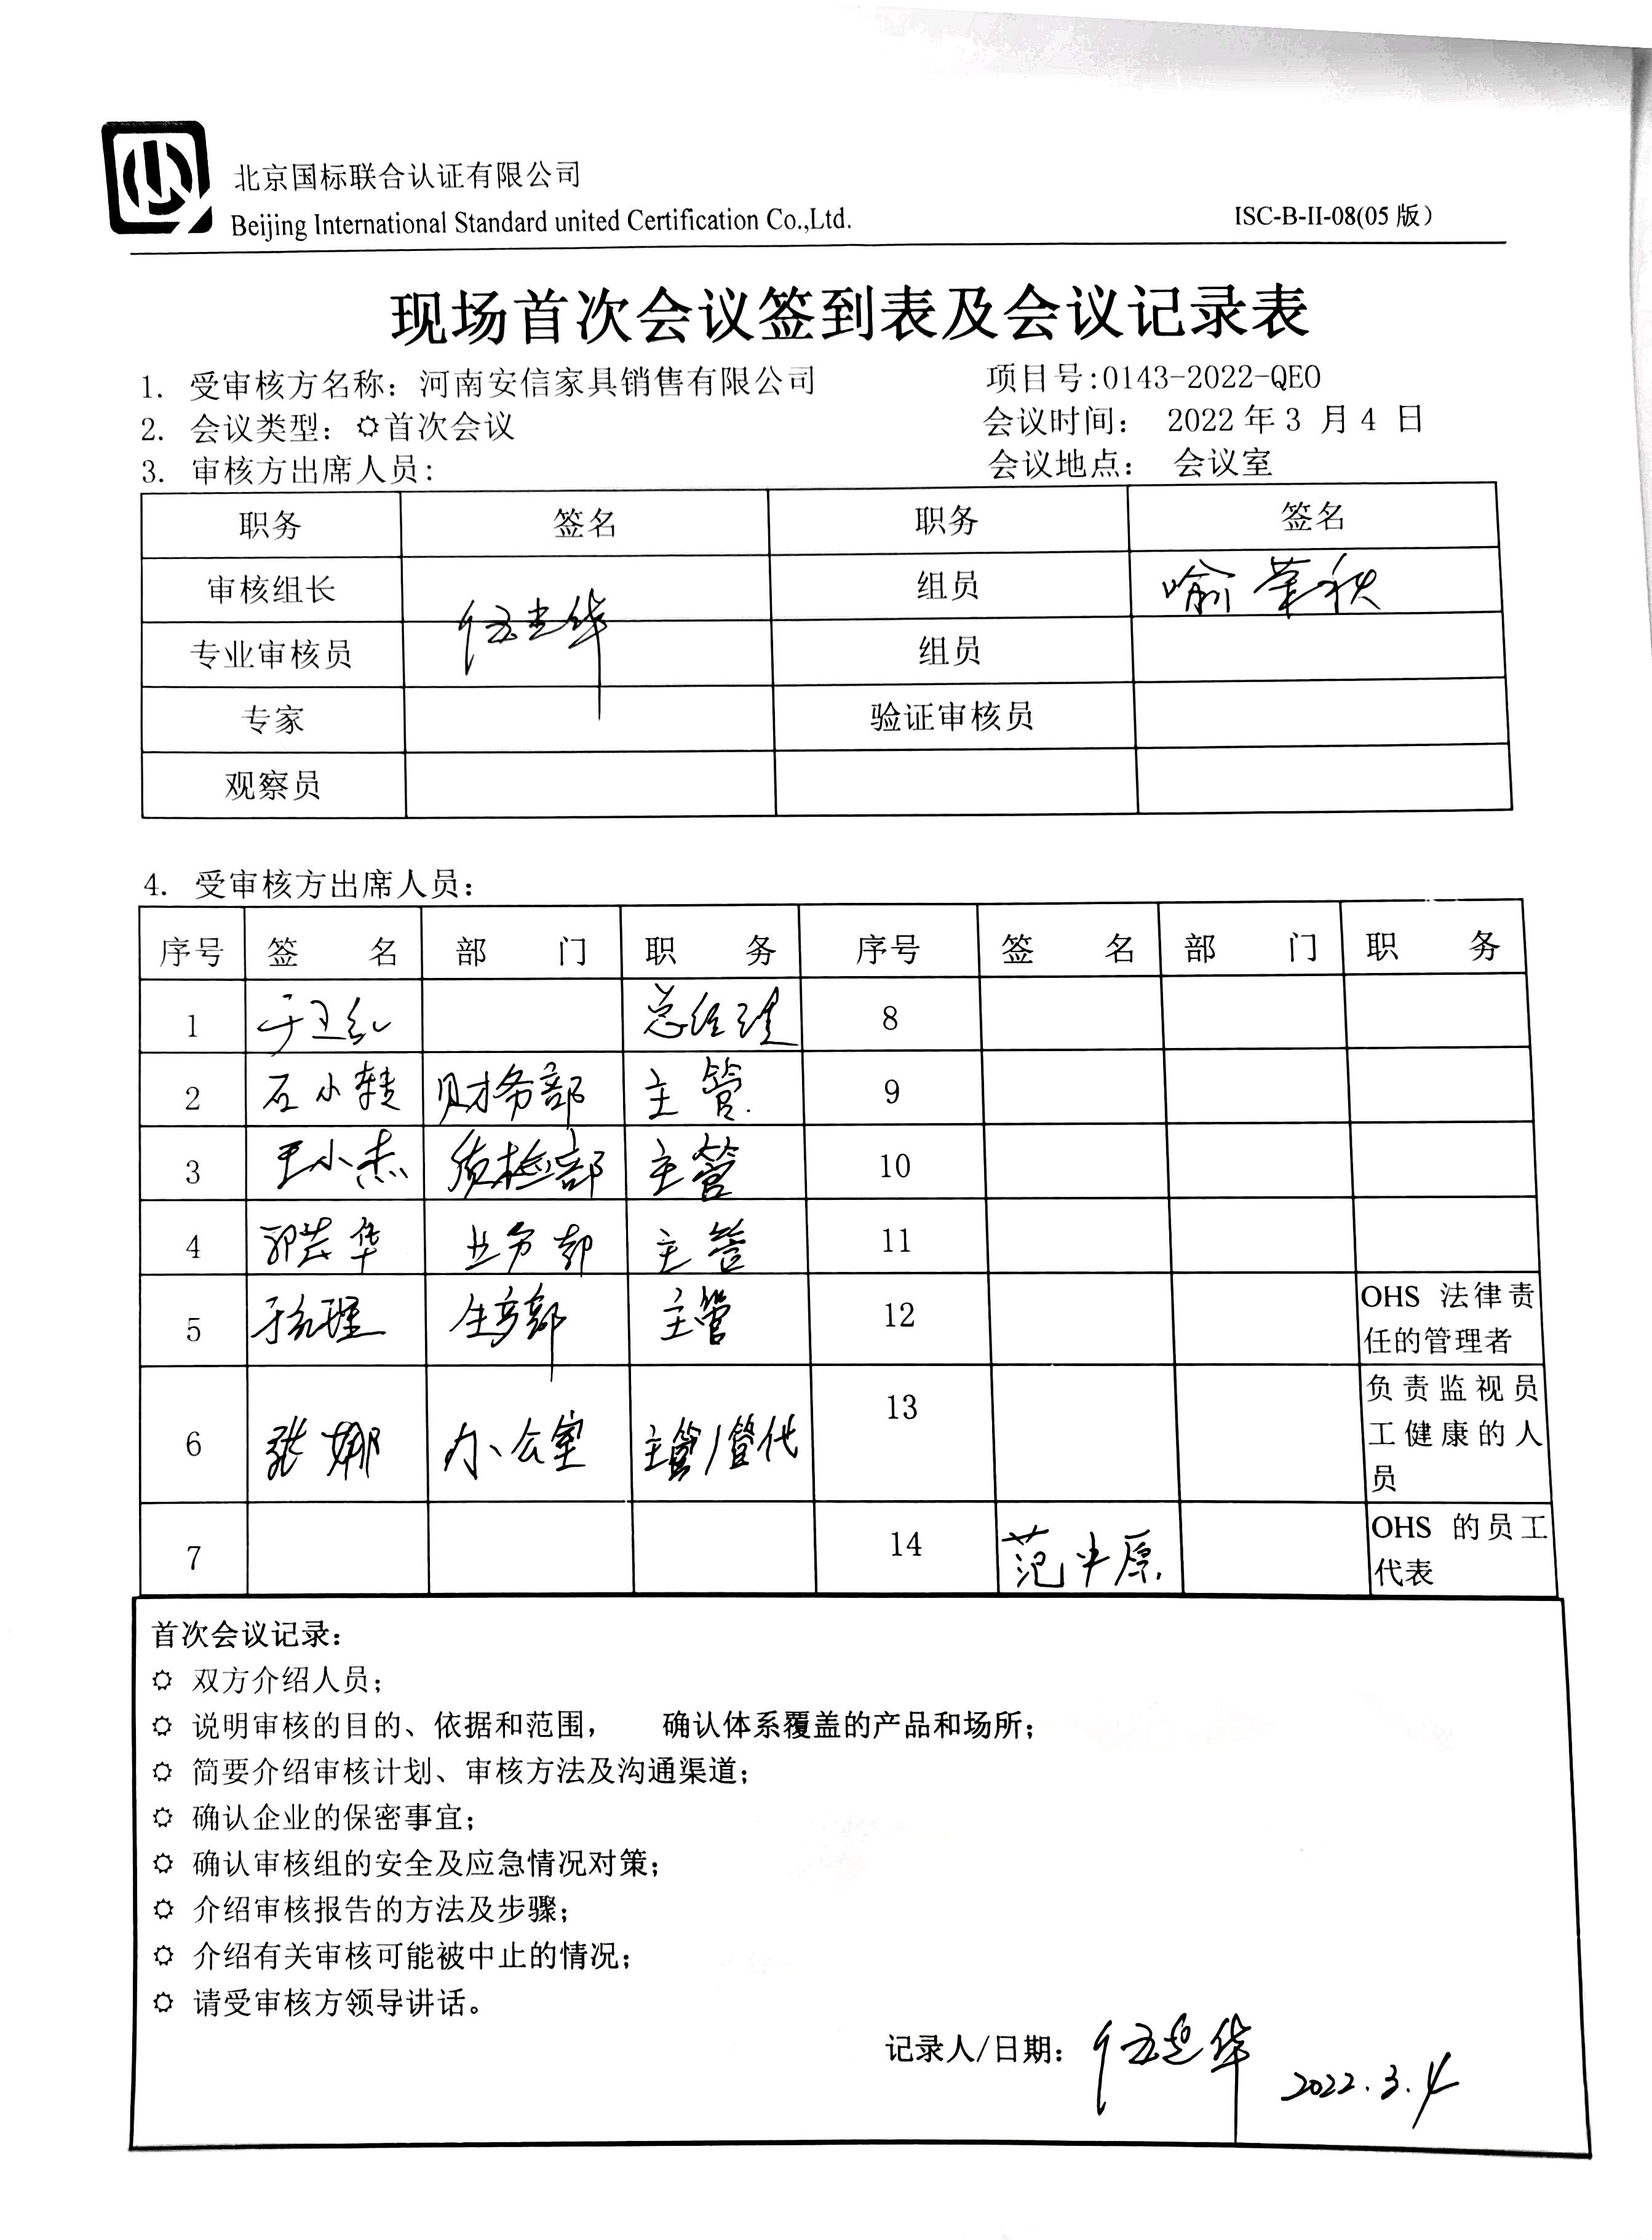 北京国标联合认证有限公司
Beijing International Standard united Certification Co.,Ltd.
ISC-B-II-08(05 版)
现场首次会议签到表及会议记录表
1. 受审核方名称：河南安信家具销售有限公司 项目号:0143-2022-QEO
2. 会议类型：首次会议 会议时间： 2022 年 3 月 4 日
3. 审核方出席人员： 会议地点： 会议室
职务 签名 职务 签名
审核组长 组员 喻荣秋
专业审核员 组员
专家 验证审核员
观察员
4. 受审核方出席人员：
序号 签 名 部 门 职 务 序号 签 名 部 门 职 务
1 总经理 8
2 石小转 财务部 主管 9
3 王小杰 质检部 主管 10
4 业务部 主管 11
5 生产部 主管 12 OHS 法律责
任的管理者
6 张娜 办公室 主管/管代 13 负责监视员
工健康的人
员
7 14 范中原 OHS 的员工
代表
首次会议记录：
双方介绍人员；
说明审核的目的、依据和范围， 确认体系覆盖的产品和场所；
简要介绍审核计划、审核方法及沟通渠道；
确认企业的保密事宜；
确认审核组的安全及应急情况对策；
介绍审核报告的方法及步骤；
介绍有关审核可能被中止的情况；
请受审核方领导讲话。
记录人/日期： 2022.3.4